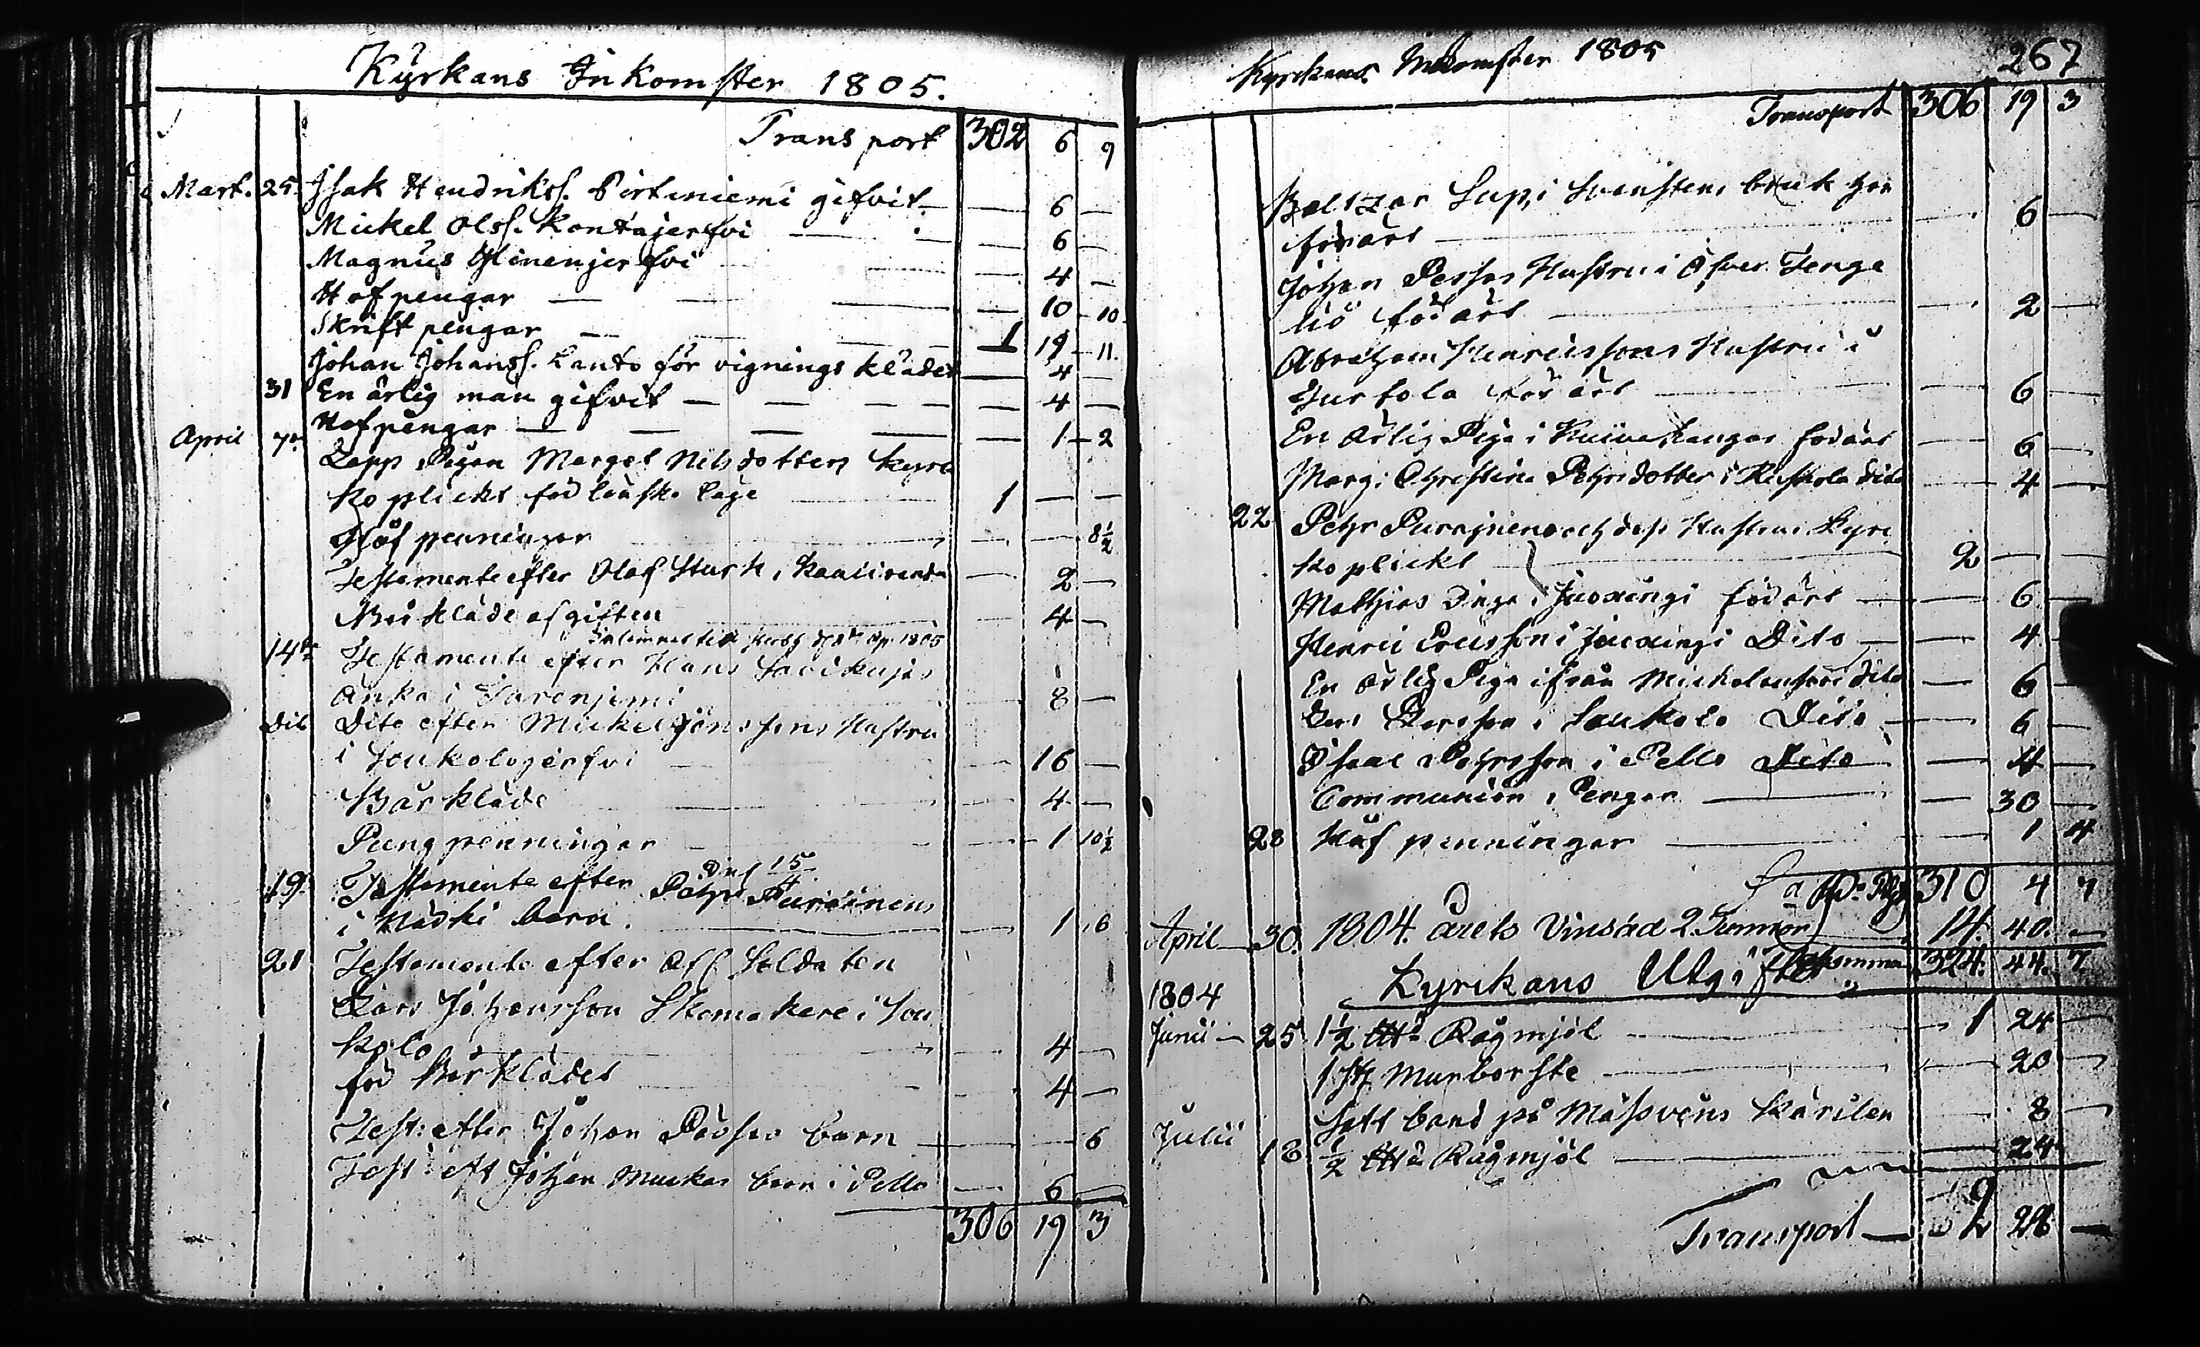 Kyrkans Inkomster 1805.
Transport 302 6 9
Mart. 25. Isak Hendrikss. Pirtiniemi gifvit — — 6 —
Mickel Olss. Kontajerfvi — — 6 —
Magnus Hinenjerfvi — 4 —
Hafpengar — — — — 10 - 10
Skriftpengar — — 1 19 - 11.
Johan Johanss. Lanto för vignings kläder — 4 —
31 En ärlig man gifvit — — — — — 4 —
Hafpengar — — — — — 1 - 2
April 7de Lapp Pigan Margel Nilsdotters kyrk
ko plickt för lönska läge — 1 — —
Håf penningar — — 8½
Testamente efter Olof Sturk i Kaulirenda — 2 —
Bårkläde afgiften — 4 —
14de Testamente efter Hans
Änka i Jarenjemi 8 —
Dit Dito efter Mickel Jönssons Hustru
i Loukolojerfvi — 16 —
Bår kläde — 4 —
Pung penningar — 1 10½
19. Testamente efter Petyr Purainens
i Nädki barn. — 1 6
21 Testamente efter Afl Soldaten
Lars Johansson Skomakare i Lou
kolo — 4 —
för Bårklädet — 4 —
Test: efter Johan barn — — 6
Test: eft Johan Muckas barn i Pello — 6 —
306 19 3
Kyrkans Inkomster 1805 267
Transport 306 19 3
Baltzar Lup, i Svanstens bruk har
förärt — 6
Johan Perssos Hustru i Öfver Tenge
liö förärt — 2 —
Abraham Henricssons Hustru i
Turtola förärt — 6 —
En ärlig Piga i Kuivakangas förärt — 6 —
Marg: Christina Petyrsdotter i Ruskola dito — 4 —
22 Petyr Purainens och dess Hustrus Kyrc
ko plickt — 2 — —
Mathias i Juoxingi förärt — 6 —
Henric Ericsson i Juoxingi Dito — 4
En ärlig Piga ifrån dito — 6 —
Lars Larsson i Loukolo Dito — 6 —
Isaac Petyrsson i Pello Dito — 4 —
Communion Pengar — 30 —
28 Håf penningar — 1 4
310 4 7
April 30. 1804. årets Vinsäd 2. Tunnor 14 40. —
Summa 324. 44. 7
Kyrckans Utgifter
1804
Junii — 25. 1½ Rågmjöl — 1 24 —
1 st Murborste — 20 —
Satt band på Mässvens kärilen 8 —
Julii 18 ½ Rågmjöl — 24
Transport — 2 28 —